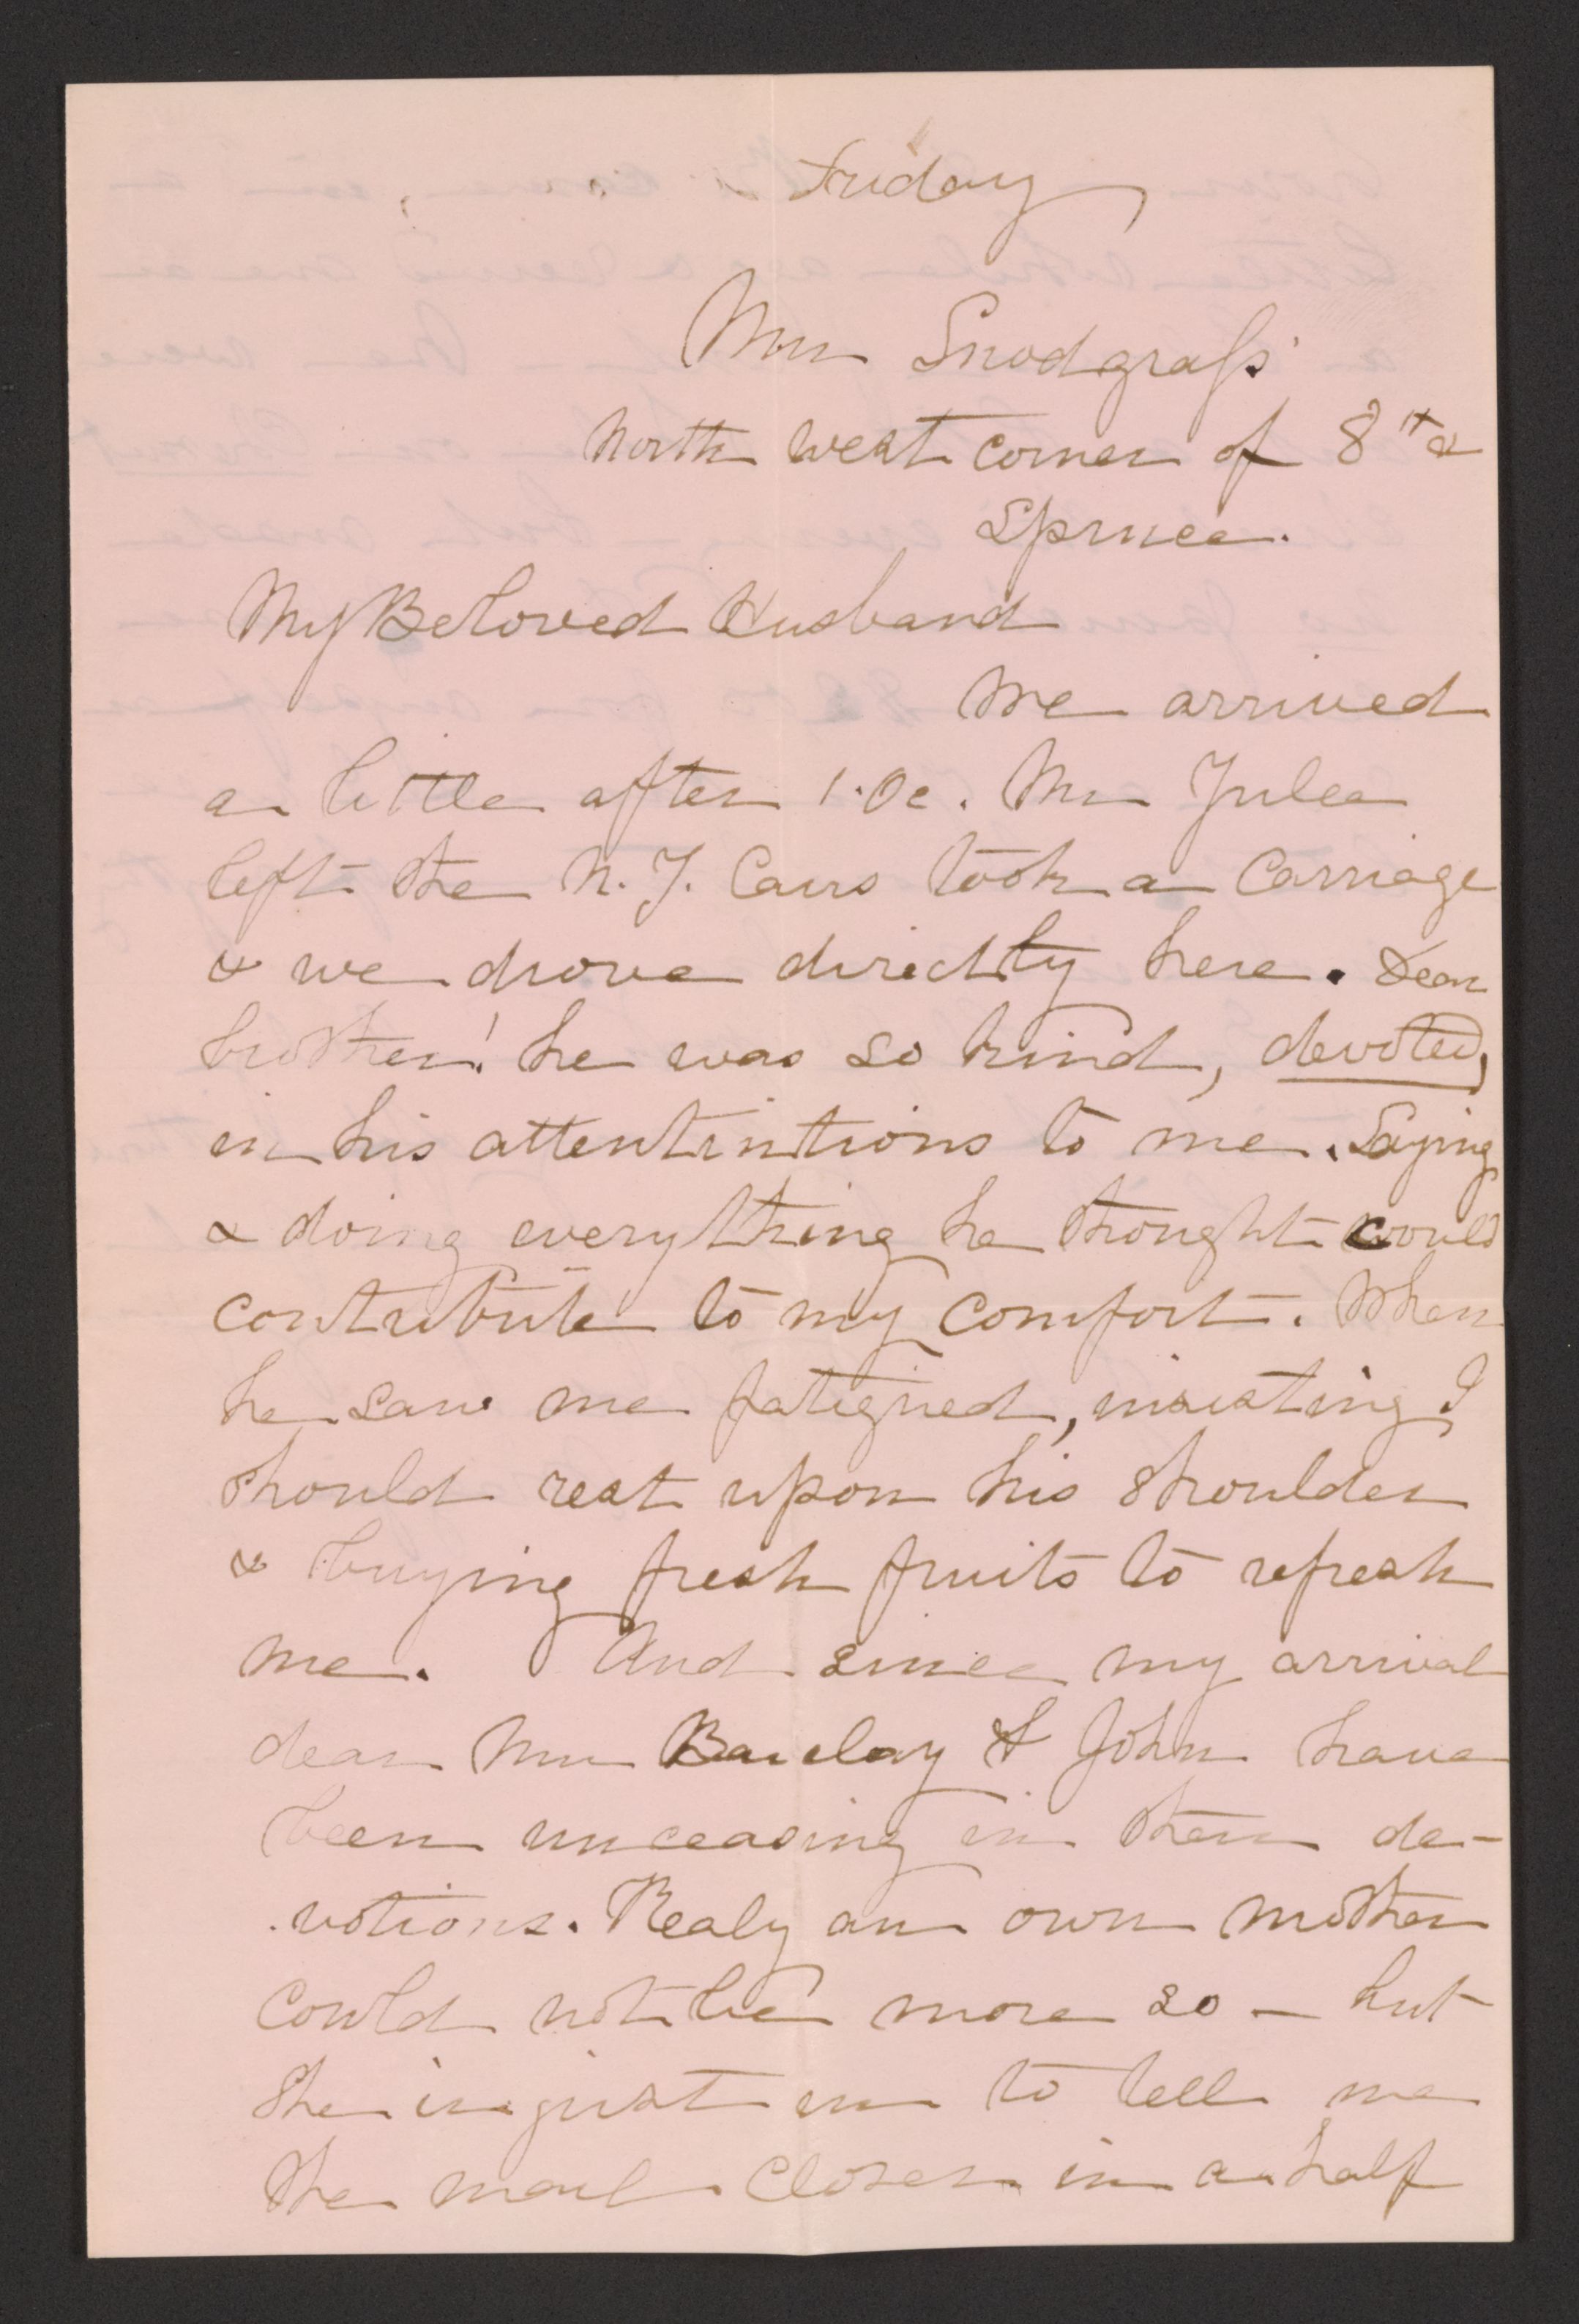 Friday
Mrs Snodgrass
North west corner of 8th &
Spruce.
My Beloved Husband
We arrived
a little after 1.Oc. Mr Jules
left the N.Y. Cars took a Carriage
& we drove directly here. Dear
brother! he was so kind, devoted,
in his attentintions to me. Saying
& doing everything he thought would
contribute to my comfort. When
he saw me fatigued, insisting I
should rest upon his shoulder
& buying fresh fruits to refresh
me. And since my arrival
dear Mrs Barclay & John have
been unceasing in their de-
votions. Realy an own mother
could not be more so - but
she is just in to tell me
the mail closes in a half